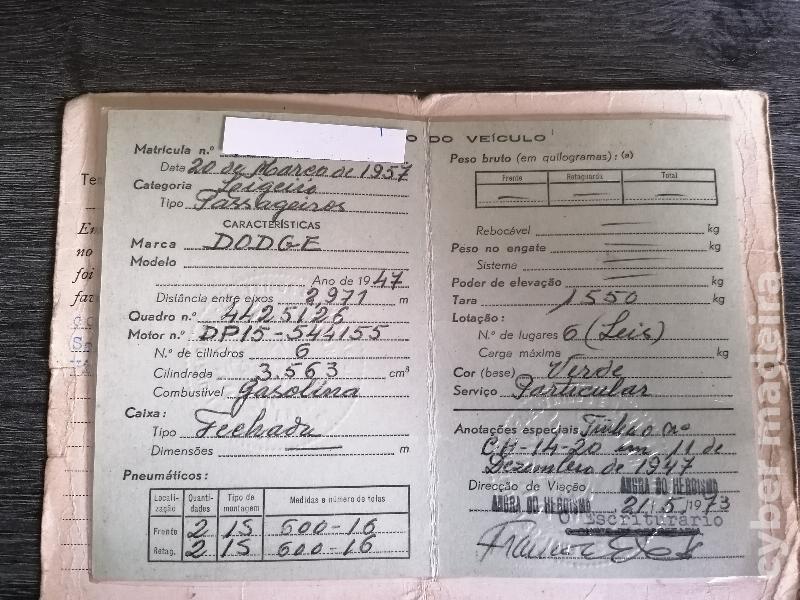 O DO VEÍCULO
Matrícula n.º
Data 20 de Março de 1957
Categoria Leigeiro
Tipo Passageiros
CARACTERÍSTICAS
Marca DODGE
Modelo
Ano de 1947
Distância entre eixos 2,971 m
Quadro n.º 4425126
Motor n.º DP15-544155
N.º de cilindros 6
Cilindrada 3.563 cm³
Combustível Gasolina
Caixa:
Tipo Fechada
Dimensões m
Pneumáticos:
Locali-zação Quanti-dades Tipo de montagem Medidas e número de telas
Frente 2 IS 600-16
Retag. 2 IS 600-16
Peso bruto (em quilogramas): (a)
Frente Retaguarda Total
Rebocável kg
Peso no engate kg
Sistema
Poder de elevação kg
Tara 1550 kg
Lotação:
N.º de lugares 6 (Seis)
Carga máxima kg
Cor (base) Verde
Serviço Particular
Anotações especiais Tinha o nº
CH-14-20 em 11 de
Dezembro de 1947
Direcção de Viação ANGRA DO HEROISMO
ANGRA DO HEROISMO 21/5/1973
O Escriturário
cyber madeira